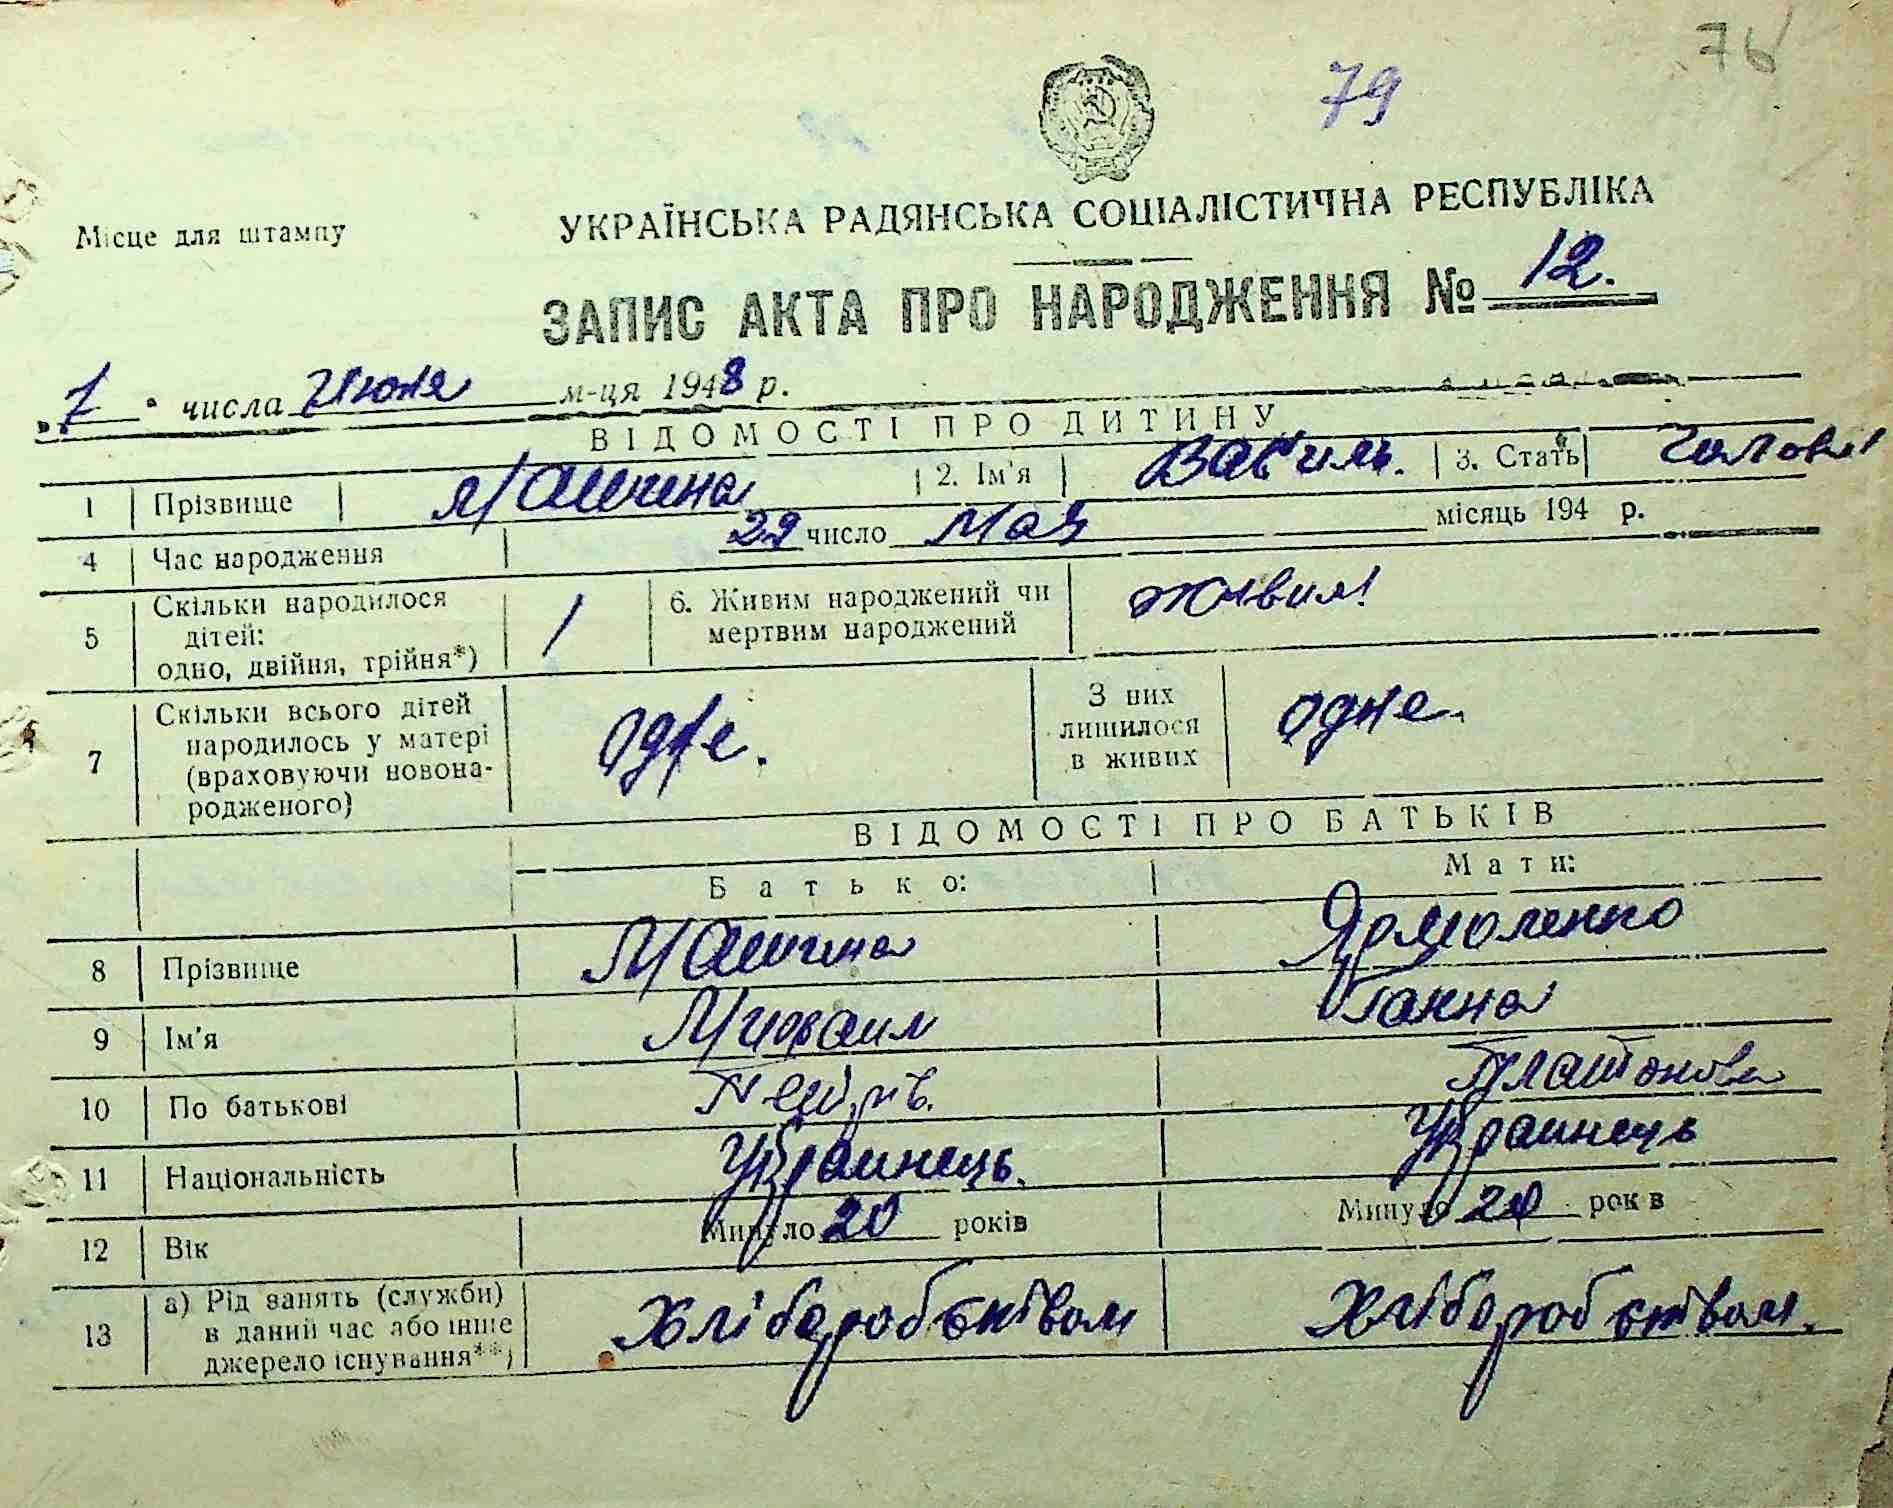 76
79
Місце для штампу
УКРАЇНСЬКА РАДЯНСЬКА СОЦІАЛІСТИЧНА РЕСПУБЛІКА
ЗАПИС АКТА ПРО НАРОДЖЕННЯ № 12.
„7" числа Июня м-ця 1948 р.
ВІДОМОСТІ ПРО ДИТИНУ
1 Прізвище Машина 2. Ім'я Василь. 3. Стать Чолові
4 Час народження 29 число Мая місяць 194 р.
5 Скільки народилося дітей: одно, двійня, трійня*) 1 6. Живим народжений чи мертвим народжений живим
7 Скільки всього дітей народилось у матері (враховуючи новонародженого) одне. З них лишилося в живих одне.
ВІДОМОСТІ ПРО БАТЬКІВ
Батько: Мати:
8 Прізвище Машина Ярмоленко
9 Ім'я Михаил Ганна
10 По батькові Петрів. Платонова
11 Національність Украинець. Украинець
12 Вік Минуло 20 років Минуло 20 років
13 а) Рід занять (служби) в даний час або інше джерело існування**) Хліборобством Хліборобством.